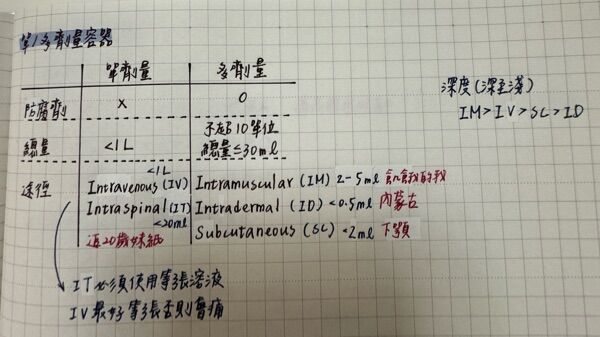 單/多劑量容器
單劑量 多劑量
防腐劑 x O
總量 <1L 不超10單位 總量≤30ml
途徑 <1L
Intravenous (IV) Intramuscular (IM) 2-5ml 飢餓我的我
Intraspinal (IT) Intradermal (ID) <0.5ml 內蒙古
<20ml Subcutaneous (SC) <2ml 下顎
近20歲妹紙
IT必須使用等張溶液
IV最好等張否則會痛
深度(深至淺)
IM>IV>SC>ID